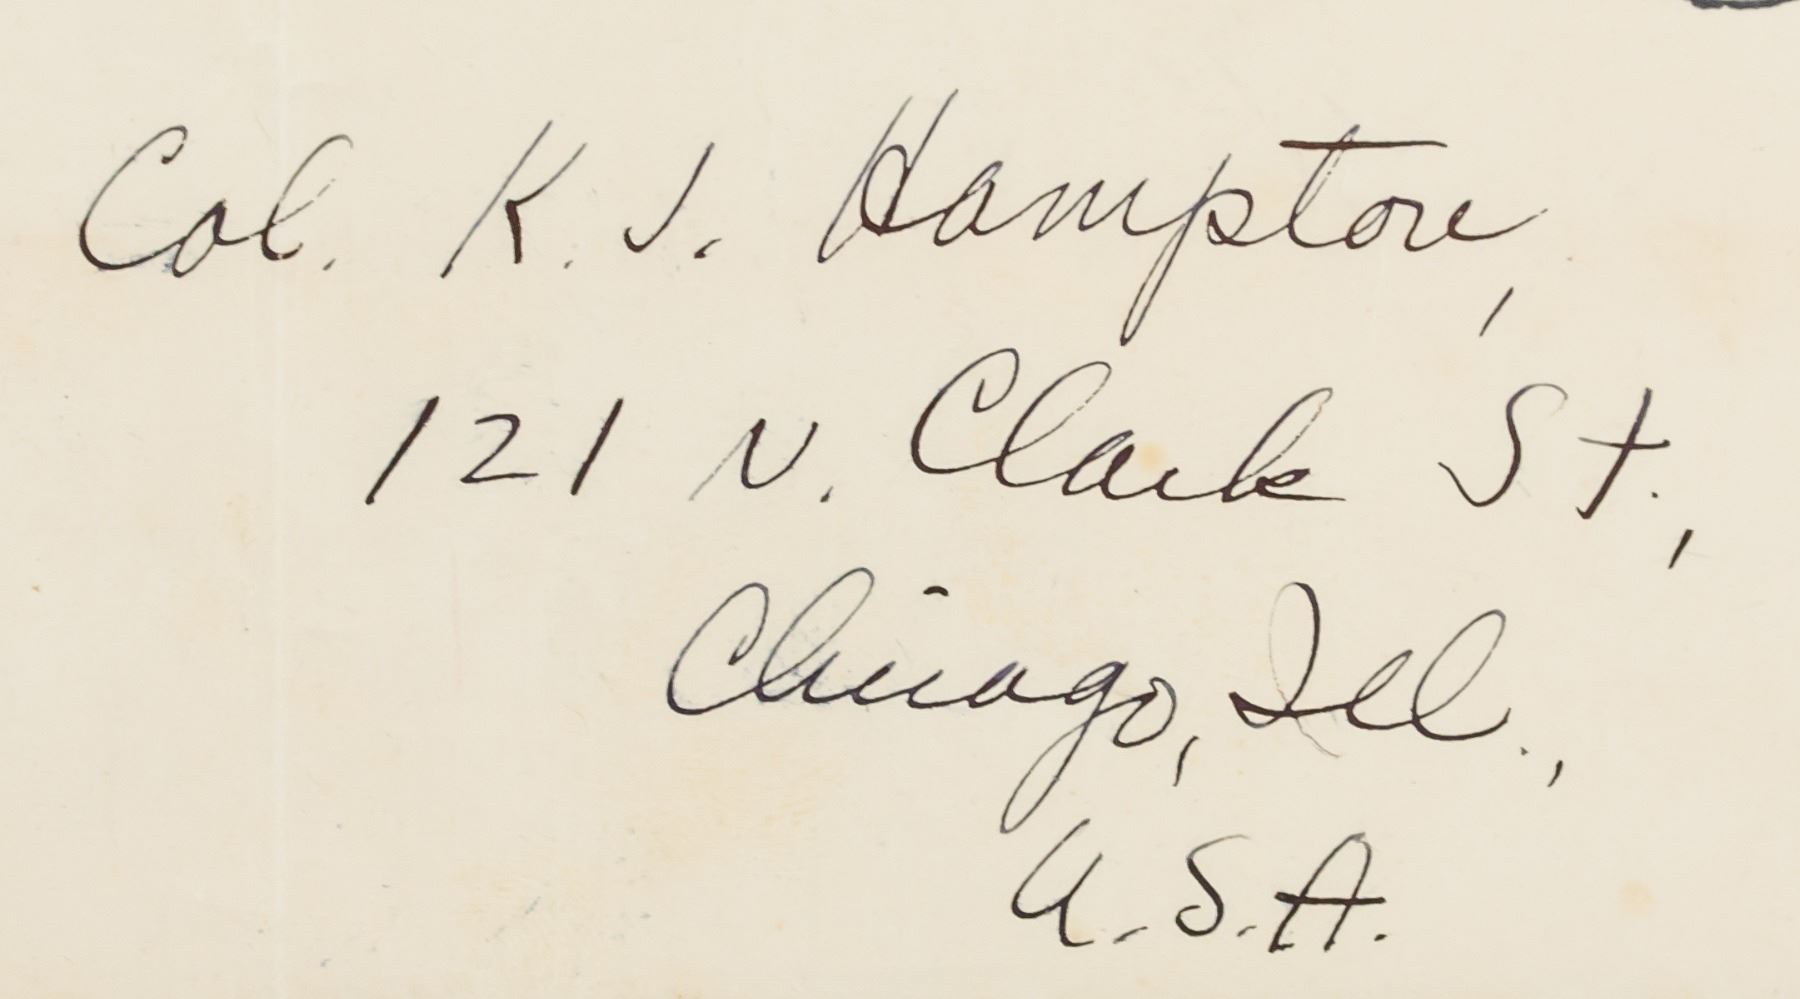 Col. K. J. Hampton,
121 N. Clark St.,
Chicago, Ill.,
U.S.A.